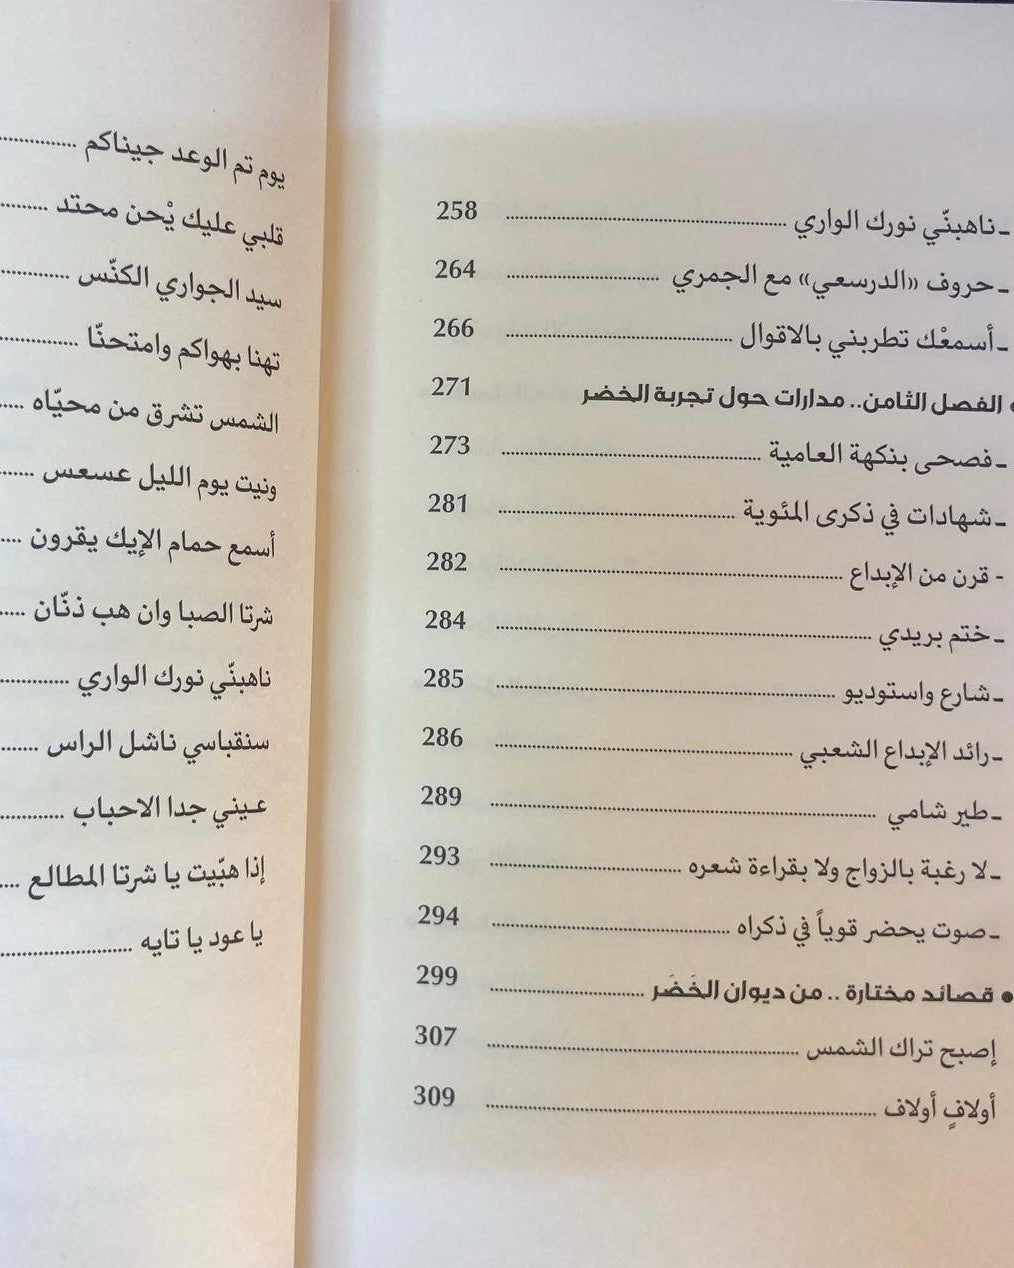 - ناهبنّي نورك الواري ........ 258
- حروف «الدرسعي» مع الجمري ........ 264
- أسمعْك تطربني بالاقوال ........ 266
• الفصل الثامن.. مدارات حول تجربة الخضر 271
- فصحى بنكهة العامية ........ 273
- شهادات في ذكرى المئوية ........ 281
- قرن من الإبداع ........ 282
- ختم بريدي ........ 284
- شارع واستوديو ........ 285
- رائد الإبداع الشعبي ........ 286
- طير شامي ........ 289
- لا رغبة بالزواج ولا بقراءة شعره ........ 293
- صوت يحضر قوياً في ذكراه ........ 294
• قصائد مختارة .. من ديوان الخَضَر ........ 299
إصبح تراك الشمس ........ 307
أولافٍ أولاف ........ 309
يوم تم الوعد جيناكم ........
قلبي عليك يْحن محتد ........
سيد الجواري الكنّس ........
تهنا بهواكم وامتحنّا ........
الشمس تشرق من محيّاه ........
ونيت يوم الليل عسعس ........
أسمع حمام الإيك يقرون ........
شرتا الصبا وان هب ذنّان ........
ناهبنّي نورك الواري ........
سنقباسي ناشل الراس ........
عيني جدا الاحباب ........
إذا هبّيت يا شرتا المطالع ........
يا عود يا تايه ........